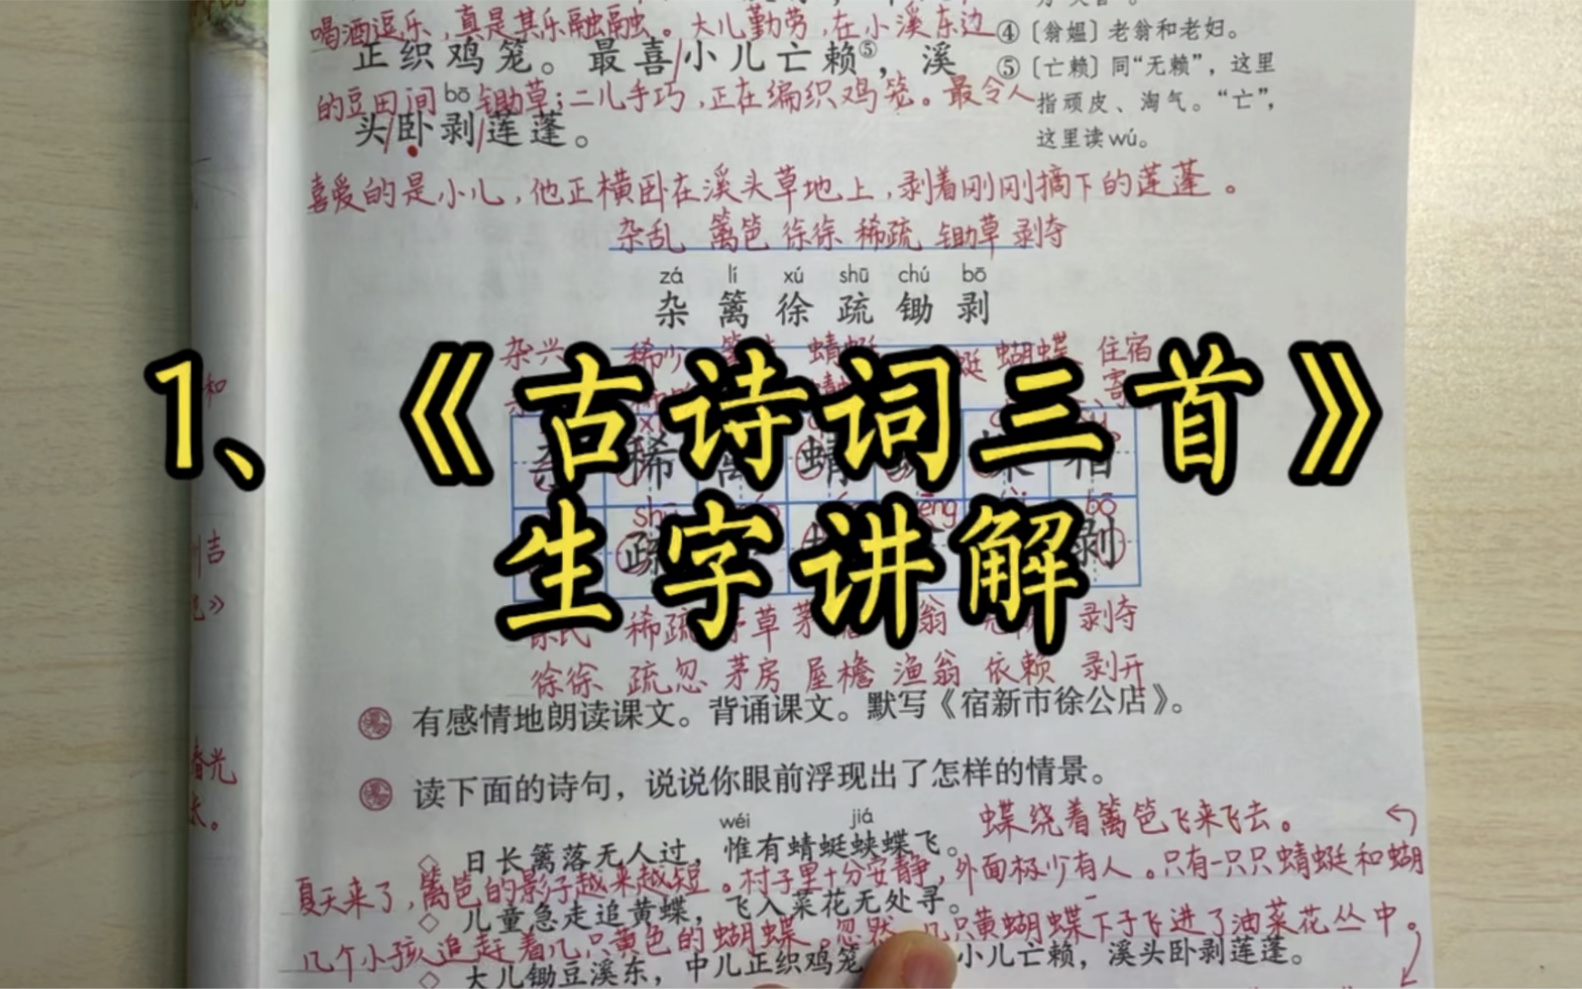 喝酒逗乐,真是其乐融融。大儿勤劳,在小溪东边
④〔翁媪〕老翁和老妇。
正织鸡笼。最喜/小儿亡赖⑤,溪
⑤〔亡赖〕同“无赖”,这里
的豆田间锄草;二儿手巧,正在编织鸡笼。最令人
指顽皮、淘气。“亡”,
bō
头/卧剥/莲蓬。
这里读wú。
喜爱的是小儿,他正横卧在溪头草地上,剥着刚刚摘下的莲蓬。
杂乱 篱笆 徐徐 稀疏 锄草 剥夺
zá lí xú shū chú bō
杂 篱 徐 疏 锄 剥
杂兴 稀少 蜻蜓 蝴蝶 住宿
和
1、《古诗词三首》
生字讲解
bō
剥
吉
稀疏 茅草 剥夺
徐徐 疏忽 茅房 屋檐 渔翁 依赖 剥开
有感情地朗读课文。背诵课文。默写《宿新市徐公店》。
春光
读下面的诗句,说说你眼前浮现出了怎样的情景。
长。
wéi jiá
蝶绕着篱笆飞来飞去。
◇ 日长篱落无人过,惟有蜻蜓蛱蝶飞。
夏天来了,篱笆的影子越来越短。村子里十分安静,外面极少有人。只有一只只蜻蜓和蝴
◇ 儿童急走追黄蝶,飞入菜花无处寻。
几个小孩追赶着几只黄色的蝴蝶。忽然,几只黄蝴蝶一下子飞进了油菜花丛中。
◇ 大儿锄豆溪东,中儿正织鸡笼 小儿亡赖,溪头卧剥莲蓬。